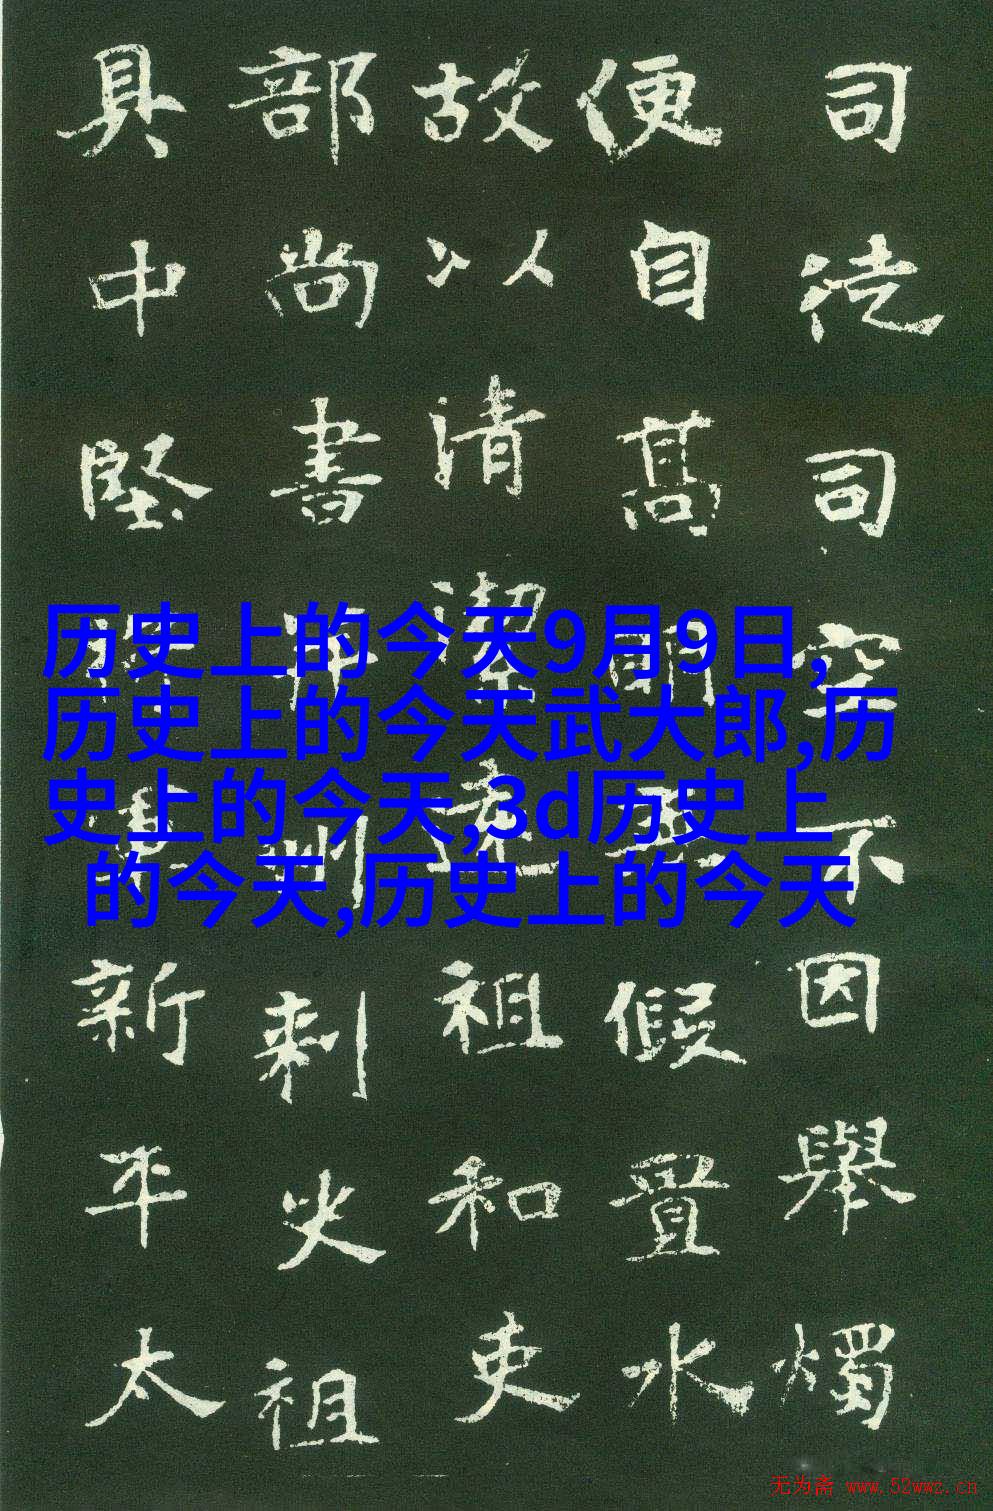 司徒司空不因舉燭
便自高明無假置水
故以清潔遠祖和吏
部尚書邢剌史祖
具中堅新平太
历史上的今天9月9日,
历史上的今天武大郎,历
史上的今天,3d历史上
的今天,历史上的今天
无为斋 www.52wwz.cn